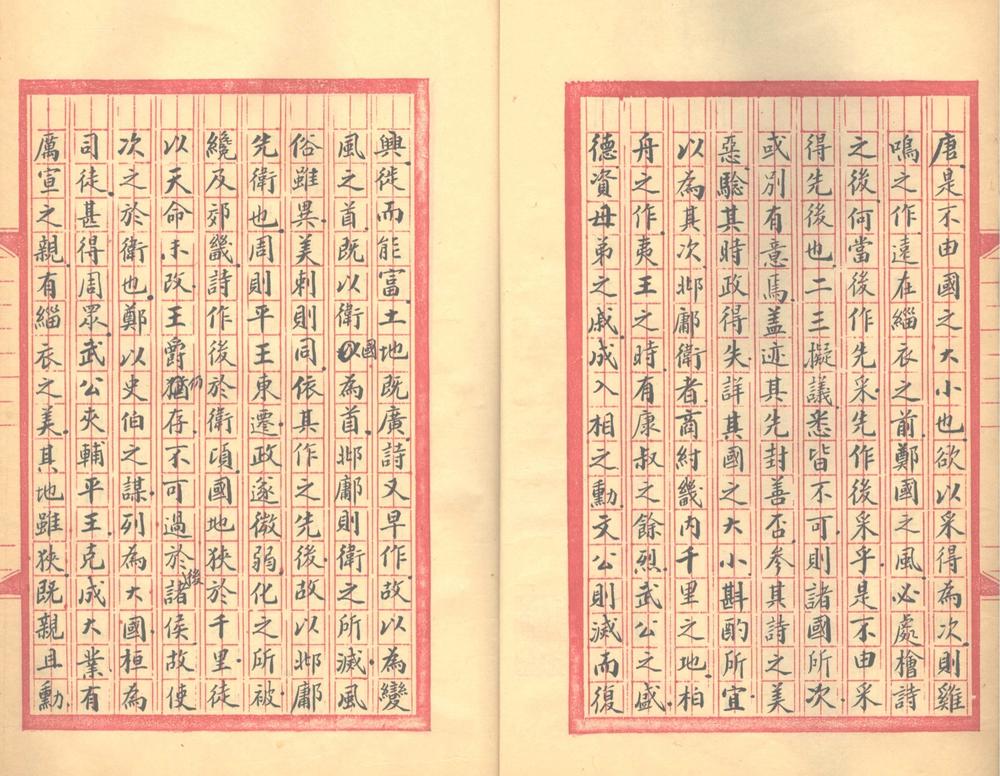 唐是不由國之大小也欲以采得為次則雞
鳴之作遠在緇衣之前鄭國之風必處檜詩
之後何當後作先采先作後采乎是不由采
得先後也二三擬議悉皆不可則諸國所次
或別有意焉盖迹其先封善否參其詩之美
惡驗其時政得失詳其國之大小斟酌所宜
以為其次邶鄘衛者商紂畿內千里之地柏
舟之作夷王之時有康叔之餘烈武公之盛
德資母弟之戚成入相之勳文公則滅而復
興徙而能富土地既廣詩又早作故以為變
風之首既以衛國為首邶鄘則衛之所滅風
俗雖異美刺則同依其作之先後故以邶鄘
先衛也周則平王東遷政遂微弱化之所被
纔及郊畿詩作後於衛頃國地狹於千里徒
以天命未改王爵仍存不可過於後諸侯故使
次之於衛也鄭以史伯之謀列為大國桓為
司徒甚得周眾武公夾輔平王克成大業有
厲宣之親有緇衣之美其地雖狹既親且勳